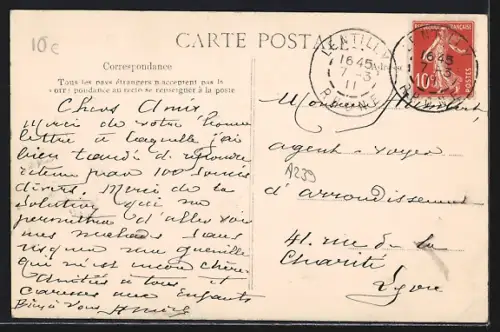 10€
CARTE POSTALE
Correspondance
Tous les pays étrangers n'acceptent pas la
correspondance au recto se renseigner à la poste
Chers Amis
Merci de votre bonne
lettre à laquelle j'ai
bien tardé de répondre
retenu par 100 soucis
divers. Merci de la
solution qui me
permettra d'aller voir
mes malades sans
risquer une guenille
qui m'est encore chère
Amitiés à tous et
caresses aux Enfants
Bien à vous
VENTILLY
16 45
7-3
11
RHONE
16 45
RHONE
10c
POSTES
Monsieur
agent-voyer
A239
d'arrondissement
41. rue de la
Charité
Lyon